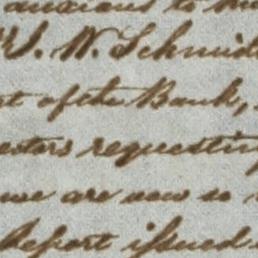 anxious to
S. W. Schmid
of the Bank,
requestin
we are now so
Report issued